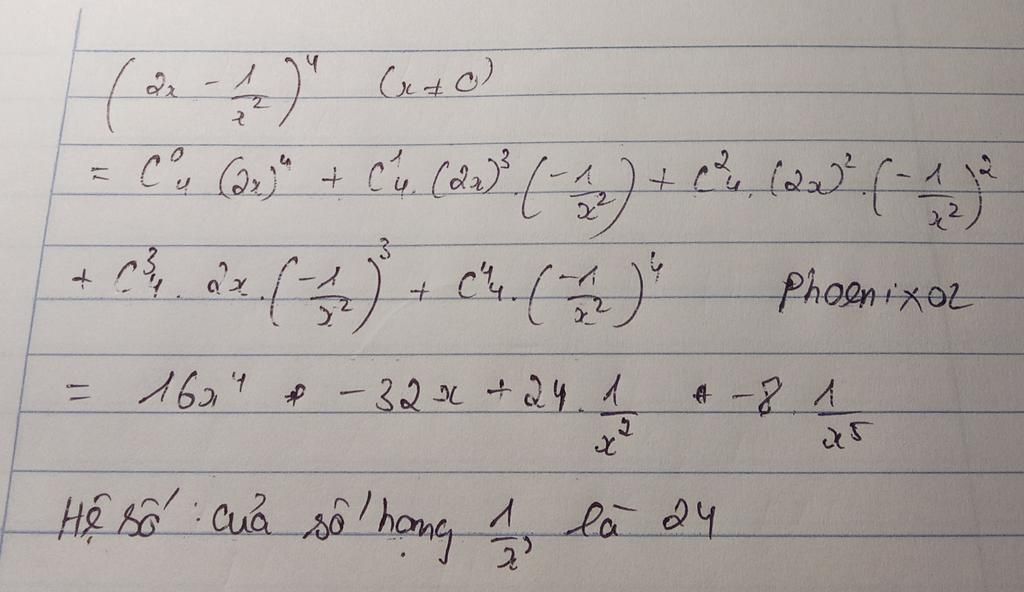 (2x - 1/x²)⁴ (x ≠ 0)
= C⁰₄ (2x)⁴ + C¹₄. (2x)³. (-1/x²) + C²₄. (2x)². (-1/x²)²
+ C³₄. 2x. (-1/x²)³ + C⁴₄. (-1/x²)⁴ Phoenixoz
= 16x⁴ - 32x + 24. 1/x² - 8. 1/x⁵
Hệ số: của số hạng 1/x² là 24